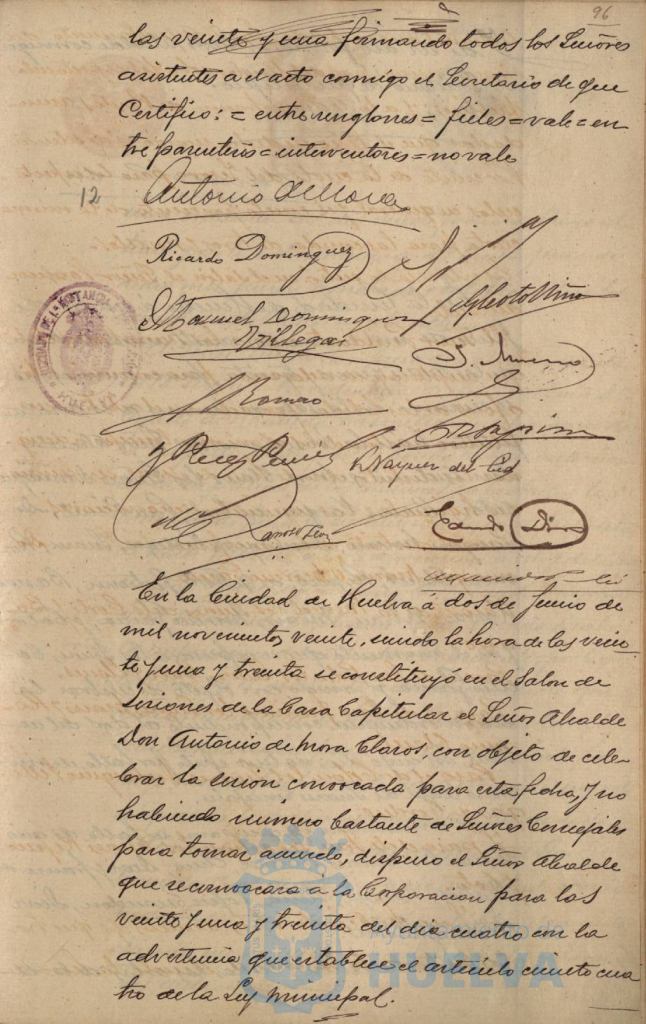 96
las veinte y una firmando todos los Señores
asistentes a el acto conmigo el Secretario de que
Certifico: = entre renglones = fieles = vale = en
tre parentesis = interventores = no vale
12
Antonio de Mora
Ricardo Dominguez
Manuel Dominguez
Villegas
J. Moreno
J Romero
Vazquez del Cid
En la Ciudad de Huelva á dos de Junio de
mil novecientos veinte, siendo la hora de las vein-
te y una y treinta se constituyó en el Salon de
Sesiones de la Casa Capitular el Señor Alcalde
Don Antonio de Mora Claros, con objeto de cele-
brar la sesion convocada para esta fecha, y no
habiendo número bastante de Señores Concejales
para tomar acuerdo, dispuso el Señor Alcalde
que se convocara a la Corporacion para las
veinte y una y treinta del dia cuatro con la
advertencia que establece el artículo ciento cua
tro de la Ley Municipal.
Ayuntamiento de
HUELVA